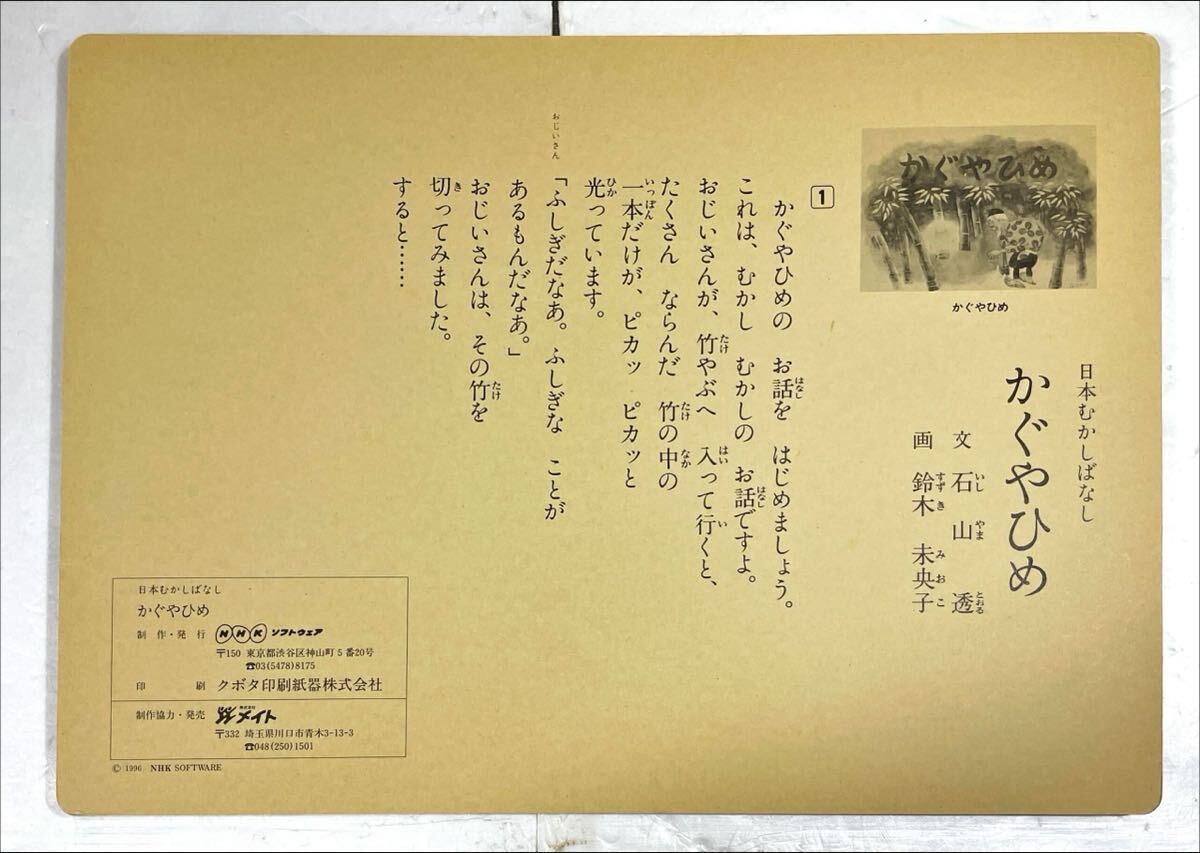 かぐやひめ
かぐやひめ
日本むかしばなし
かぐやひめ
文 石山 透
いし やま とおる
画 鈴木 未央子
すず き み お こ
1
かぐやひめの お話を はじめましょう。
はなし
これは、むかし むかしの お話ですよ。
はなし
おじいさんが、竹やぶへ 入って行くと、
たけ はい い
たくさん ならんだ 竹の中の
たけ なか
一本だけが、ピカッ ピカッと
いっぽん
光っています。
ひか
おじいさん
「ふしぎだなあ。ふしぎな ことが
あるもんだなあ。」
おじいさんは、その竹を
たけ
切ってみました。
き
すると……
日本むかしばなし
かぐやひめ
制作・発行 NHK ソフトウェア
〒150 東京都渋谷区神山町5番20号
☎03(5478)8175
印刷 クボタ印刷紙器株式会社
制作協力・発売 株式会社 メイト
〒332 埼玉県川口市青木3-13-3
☎048(250)1501
© 1996 NHK SOFTWARE